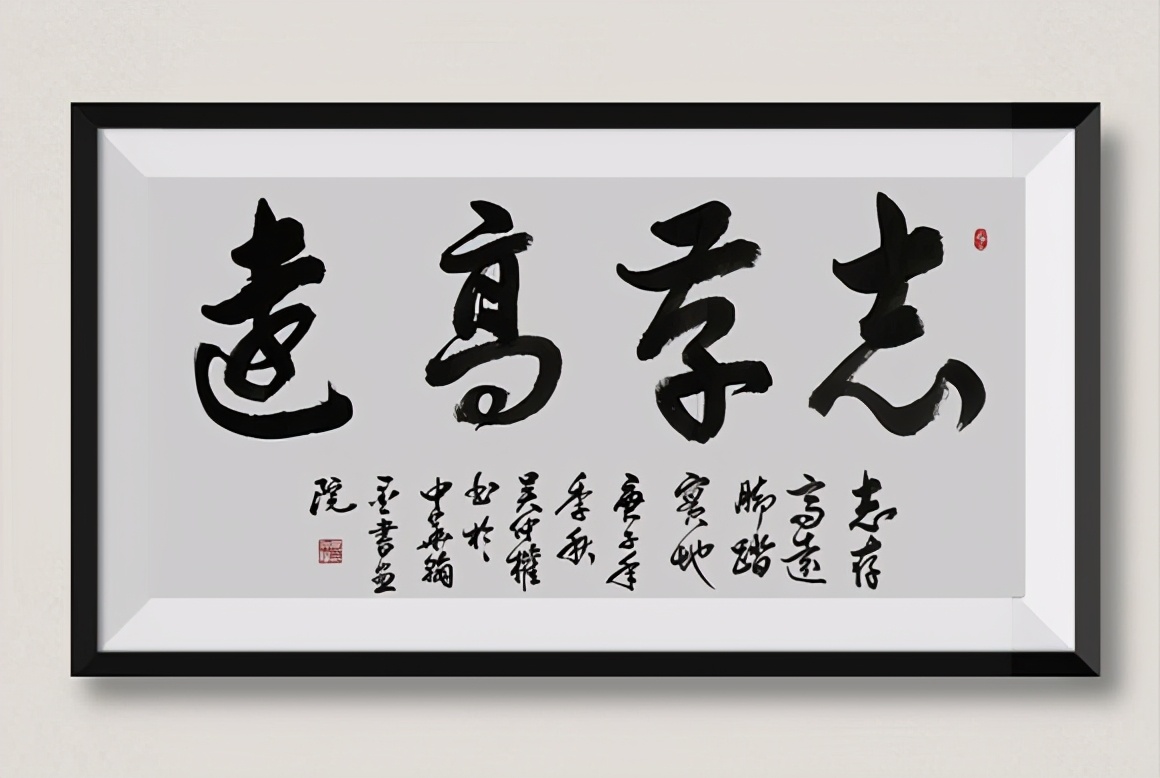 志存高遠
志存
高遠
脚踏
實地
庚子年
季秋
吴仲權
书於
中華翰
墨書画
院